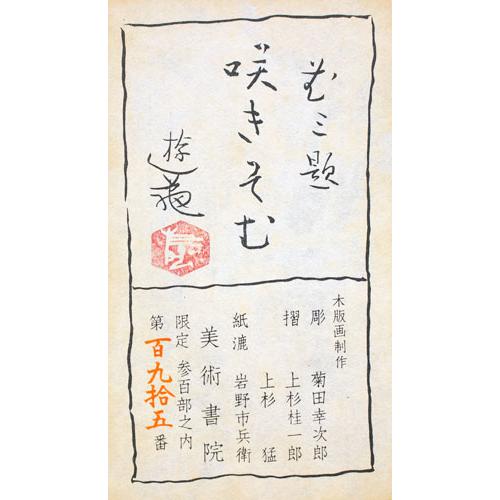 花三題
咲きそむ
遊亀
木版画制作
彫 菊田幸次郎
摺 上杉桂一郎
上杉 猛
紙漉 岩野市兵衛
美術書院
限定 参百部之内
第百九拾五番